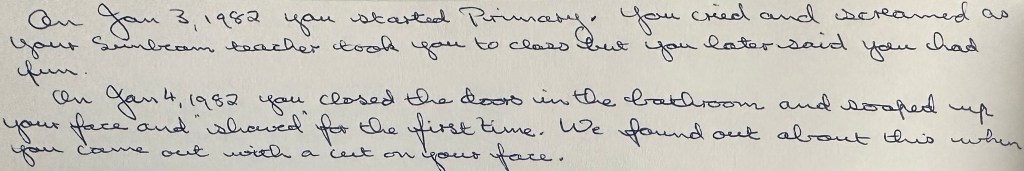 On Jan 3, 1982 you started Primary. You cried and screamed as
your Sunbeam teacher took you to class but you later said you had
fun.
On Jan 4, 1982 you closed the doors in the bathroom and soaped up
your face and "shaved" for the first time. We found out about this when
you came out with a cut on your face.